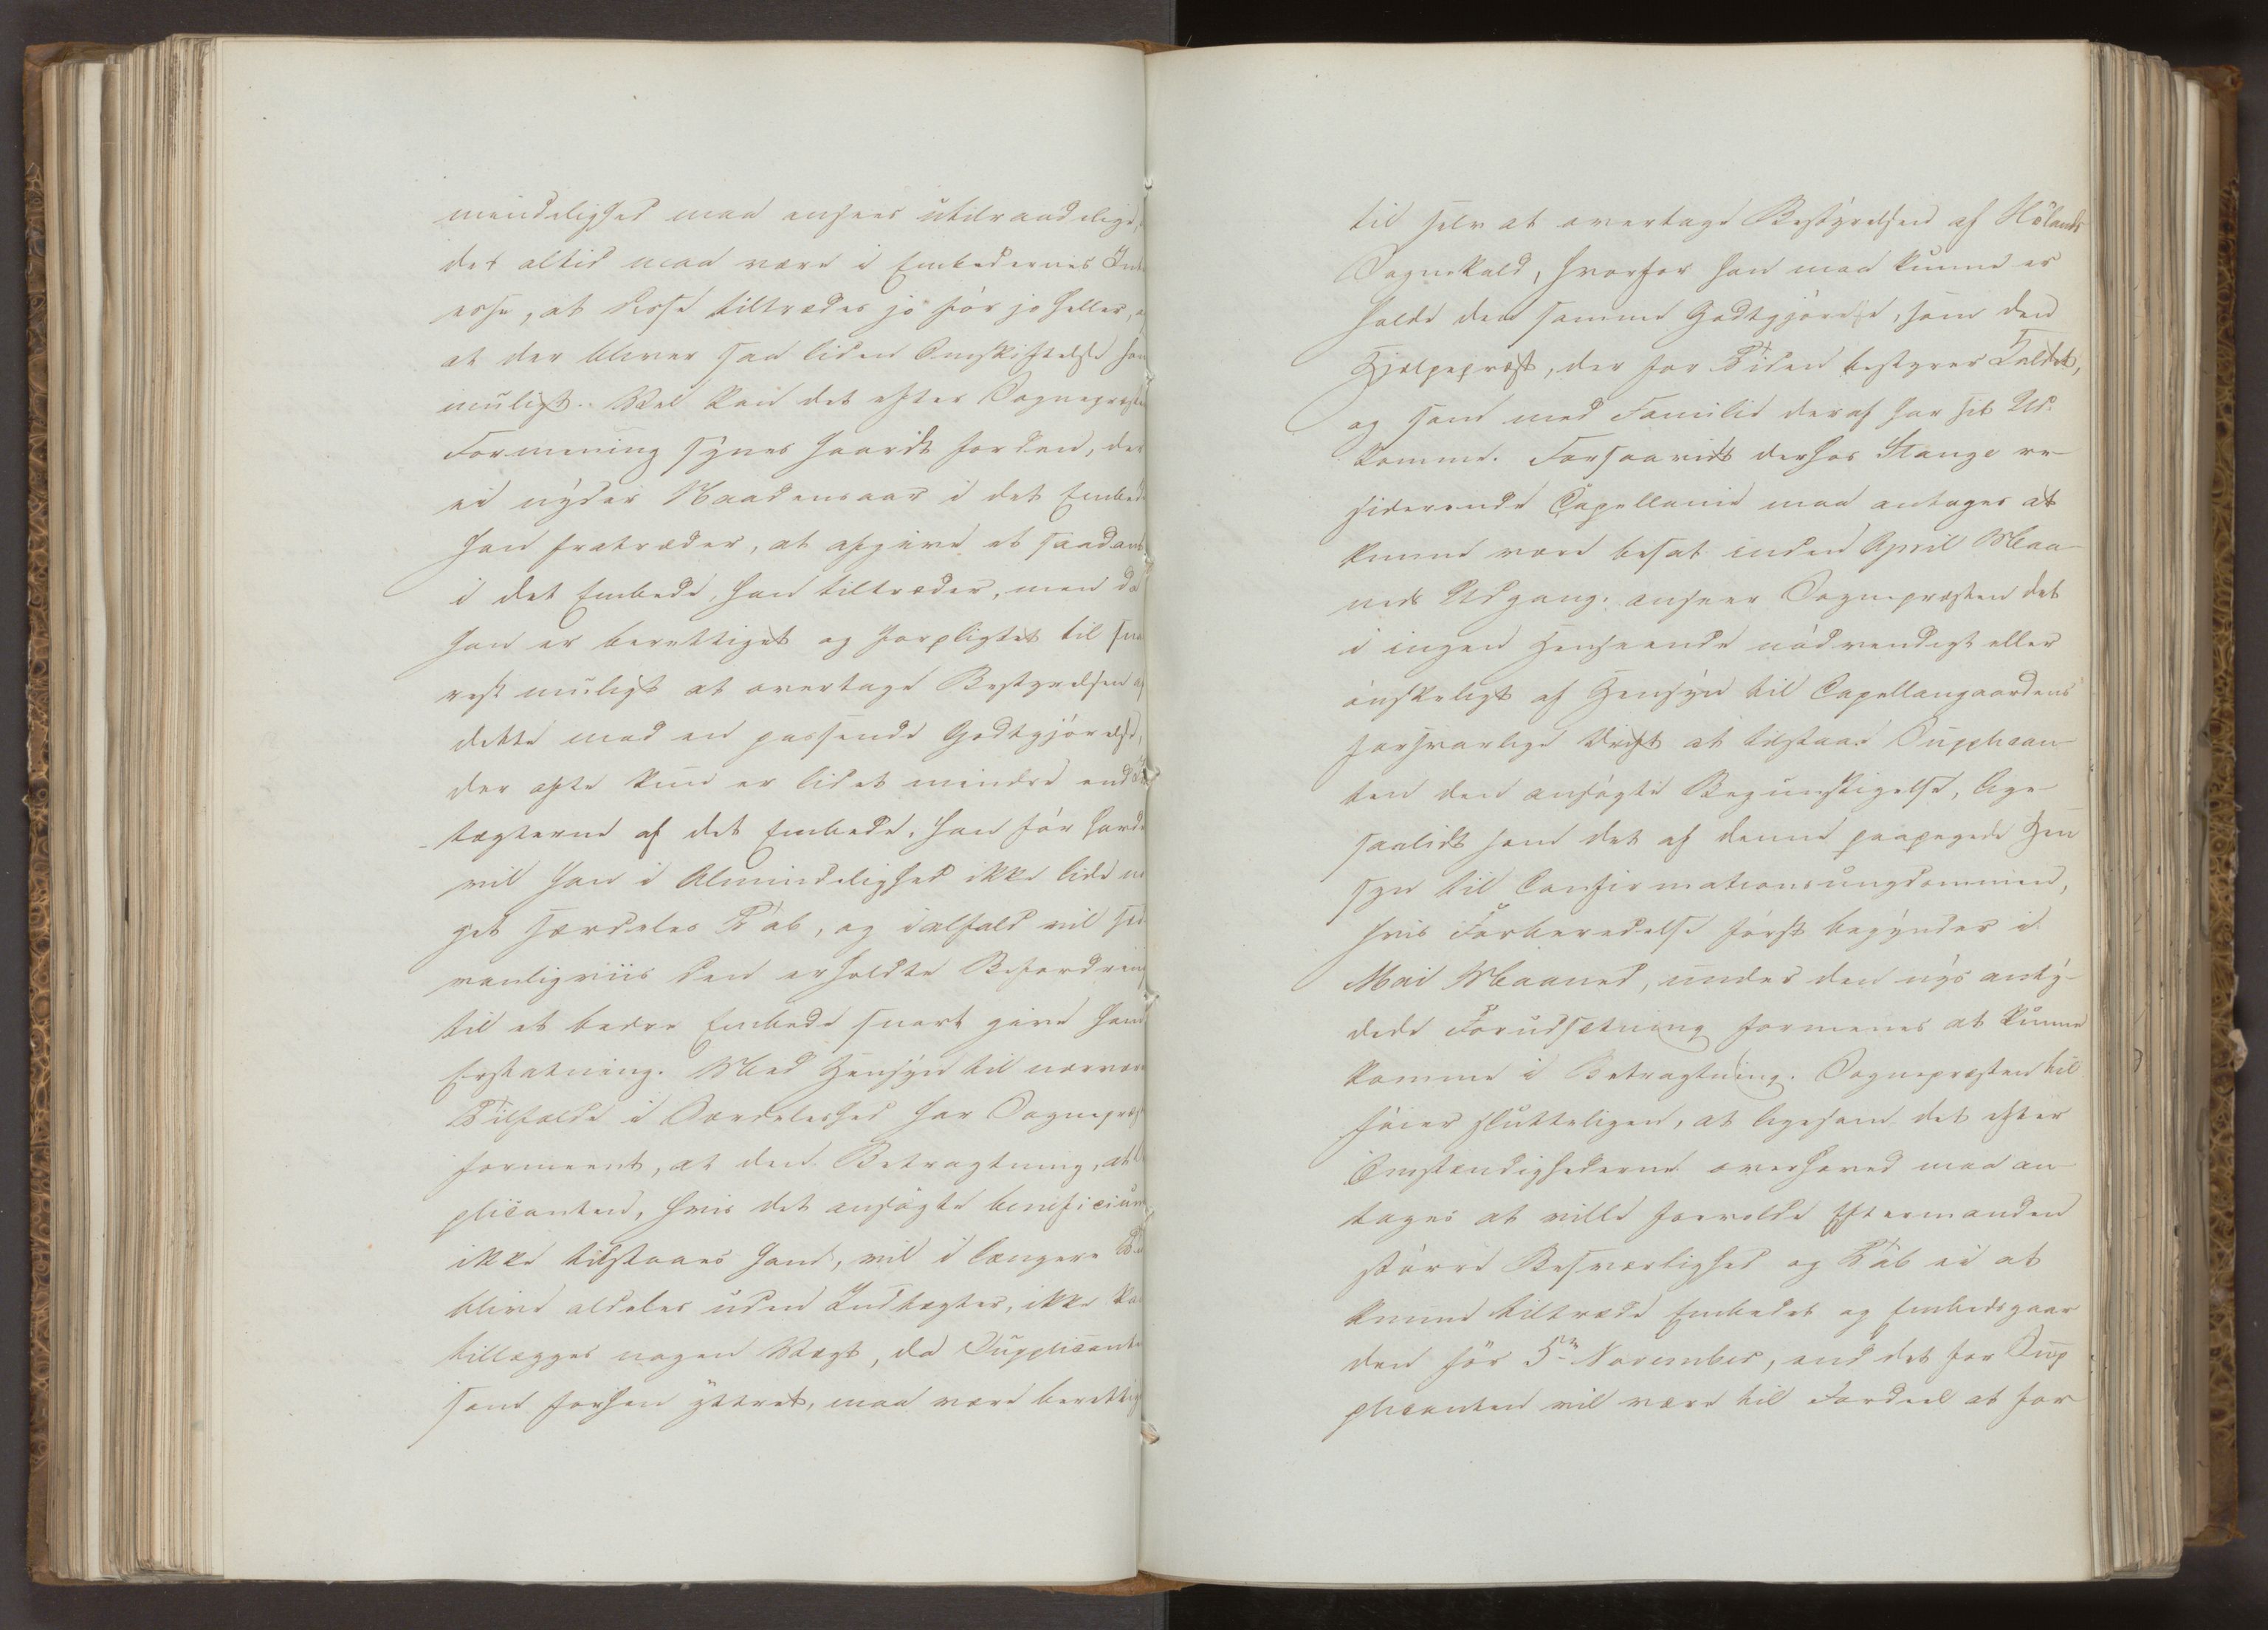 mindelighed maa ansees utilraadelige,
det altid maa være i Embedernes Inte
esse, at disse tiltrædes jo før jo heller, o
at der bliver saa liden Omskiftelse som
muligt. Vel kan det efter Sognepræste
Formening synes haardt for den, der
ei nyder Naadensaar i det Embed
han fratræder, at afgive et saadant
i det Embede, han tiltræder, men da
han er berettiget og forpligtet til sna
rest muligt at overtage Bestyrelsen af
dette mod en passende Godtgjørelse,
der ofte kun er lidet mindre end Ind
tægterne af det Embede, han før havde
vil han i Almindelighed ikke lide no
get særdeles Tab, og ialfald vil sæd
vanligviis den erholdte Befordring
til et bedre Embede snart give ham
Erstatning. Med Hensyn til nærvær
Tilfælde i Særdeleshed har Sognepræst
formeent, at den Betragtning, at
plicanten, hvis det ansøgte beneficium
ikke tilstaaes ham, vil i længere Tid
blive aldeles uden Indtægter, ikke kan
tillægges nogen Vægt, da Supplicante
som forhen yttret, maa være berettig
til selv at overtage Bestyrelsen af Hølands
Sognekald, hvorfor han maa kunne er
holde den samme Godtgjørelse, som den
Hjelpepræst, der for Tiden bestyrer Kaldet,
og som med Familie deraf har sit Ud-
komme. Forsaavidt derhos Stange re-
siderende Capellanie maa antages at
kunne være besat inden April Maa-
neds Udgang, anseer Sognepræsten det
i ingen Henseende nødvendigt eller
ønskeligt af Hensyn til Capellangaardens
forsvarlige Drift at tilstaae Supplican-
ten den ansøgte Begunstigelse, lige-
saalidt som det af denne paapegede Hen
syn til Confirmationsungdommen,
hvis Forberedelse først begynder i
Mai Maaned, under den nys anty-
dede Forudsætning formenes at kunne
komme i Betragtning. Sognepræsten til
føier slutteligen, at ligesom det efter
Omstændighederne overhoved maa an-
tages at ville forvolde Eftermanden
større Besværlighed og Tab ei at
kunne tiltræde Embedet og Embedsgaar
den før 5te November, end det for Sup
plicanten vil være til Fordeel at for